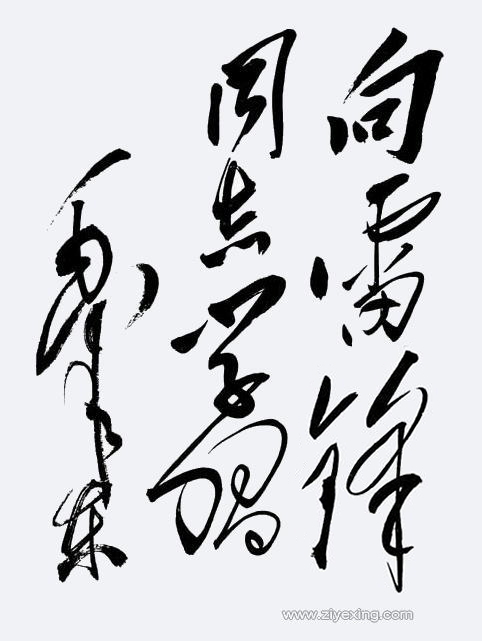 向雷锋
同志学习
毛泽东
www.ziyexing.com